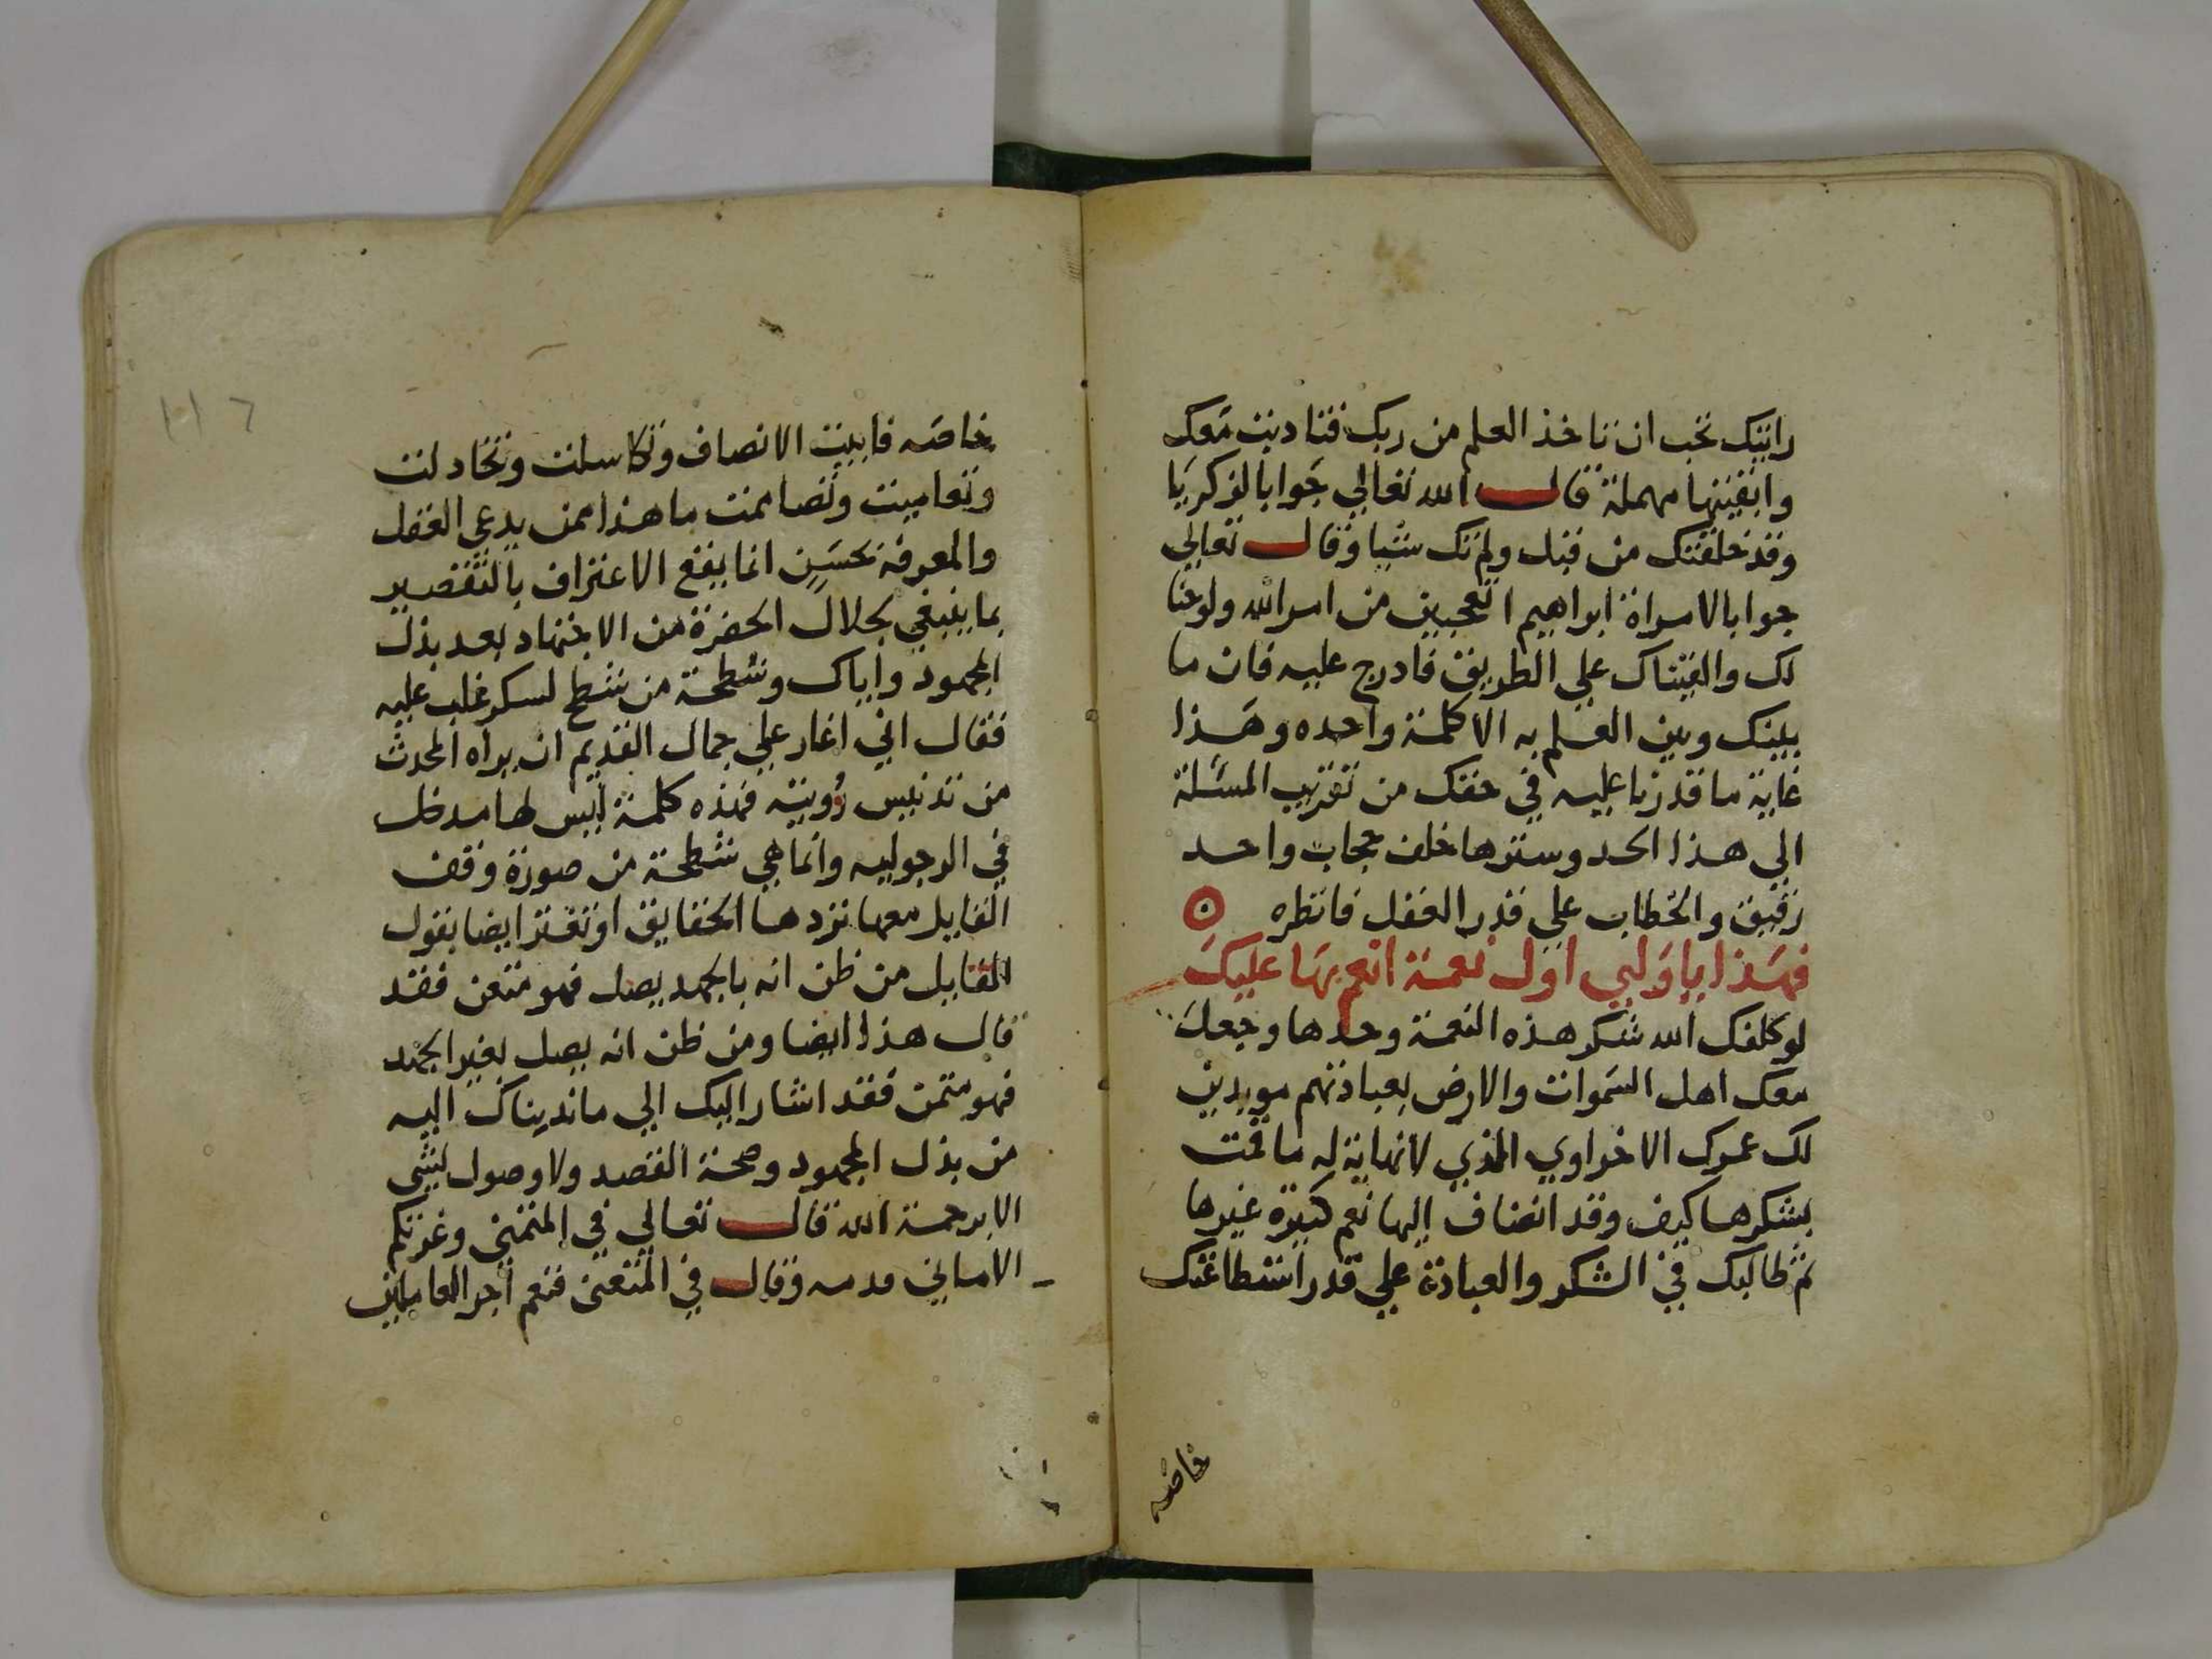 رايتك تحب ان تاخذ العلم من ربك فتادبت معك
وابقيتها مهملة قال الله تعالي جوابا لزكريا
وقد خلقتك من قبل ولم تك شيا وقال تعالي
جوابا لامراة ابراهيم اتعجبين من امر الله ولوحنا
لك والقيناك علي الطريق فادرج عليه فان ما
بينك وبين العلم به الا كلمة واحده وهذا
غاية ما قدرنا عليه في حقك من تقريب المسئلة
الي هذا الحد وسترها خلف حجاب واحد
رقيق والخطاب علي قدر العقل فانظره
فهذا يا وليي اول نعمة انعم بها عليك
لو كلفك الله شكر هذه النعمة وحدها وجعل
معك اهل السموات والارض بعبادتهم مويدين
لك عمرك الاخراوي الذي لا نهاية له ما قمت
بشكرها كيف وقد انضاف اليها نعم كثيرة غيرها
ثم طالبك في الشكر والعبادة علي قدر استطاعتك
خاصه
١١٦
خاصه فابيت الانصاف وتكاسلت وتخاذلت
وتعاميت وتصاممت ما هذا ممن يدعي العقل
والمعرفة بحسن انما يقع الاعتراف بالتقصير
بما ينبغي بجلال الحضرة من الاجتهاد بعد بذل
المجهود واياك وشطحة من شطح لسكر غلب عليه
فقال اني اغار علي جمال القديم ان يراه المحدث
من تدنيس رؤيته فهذه كلمة ليس لها مدخل
في الرجوليه وانما هي شطحة من صورة وقف
القايل معها تردها الحقايق او تقتر ايضا بقول
القايل من ظن انه بالجهد يصل فهو متعن فقد
قال هذا ايضا ومن ظن انه يصل بغير الجهد
فهو متمن فقد اشار اليك الي ما نديناك اليه
من بذل المجهود وصحة القصد ولا وصول لشي
الا برحمة الله قال تعالي في المتمني وغرتكم
الاماني مدمه وقال في المتعني فنعم اجر العاملين